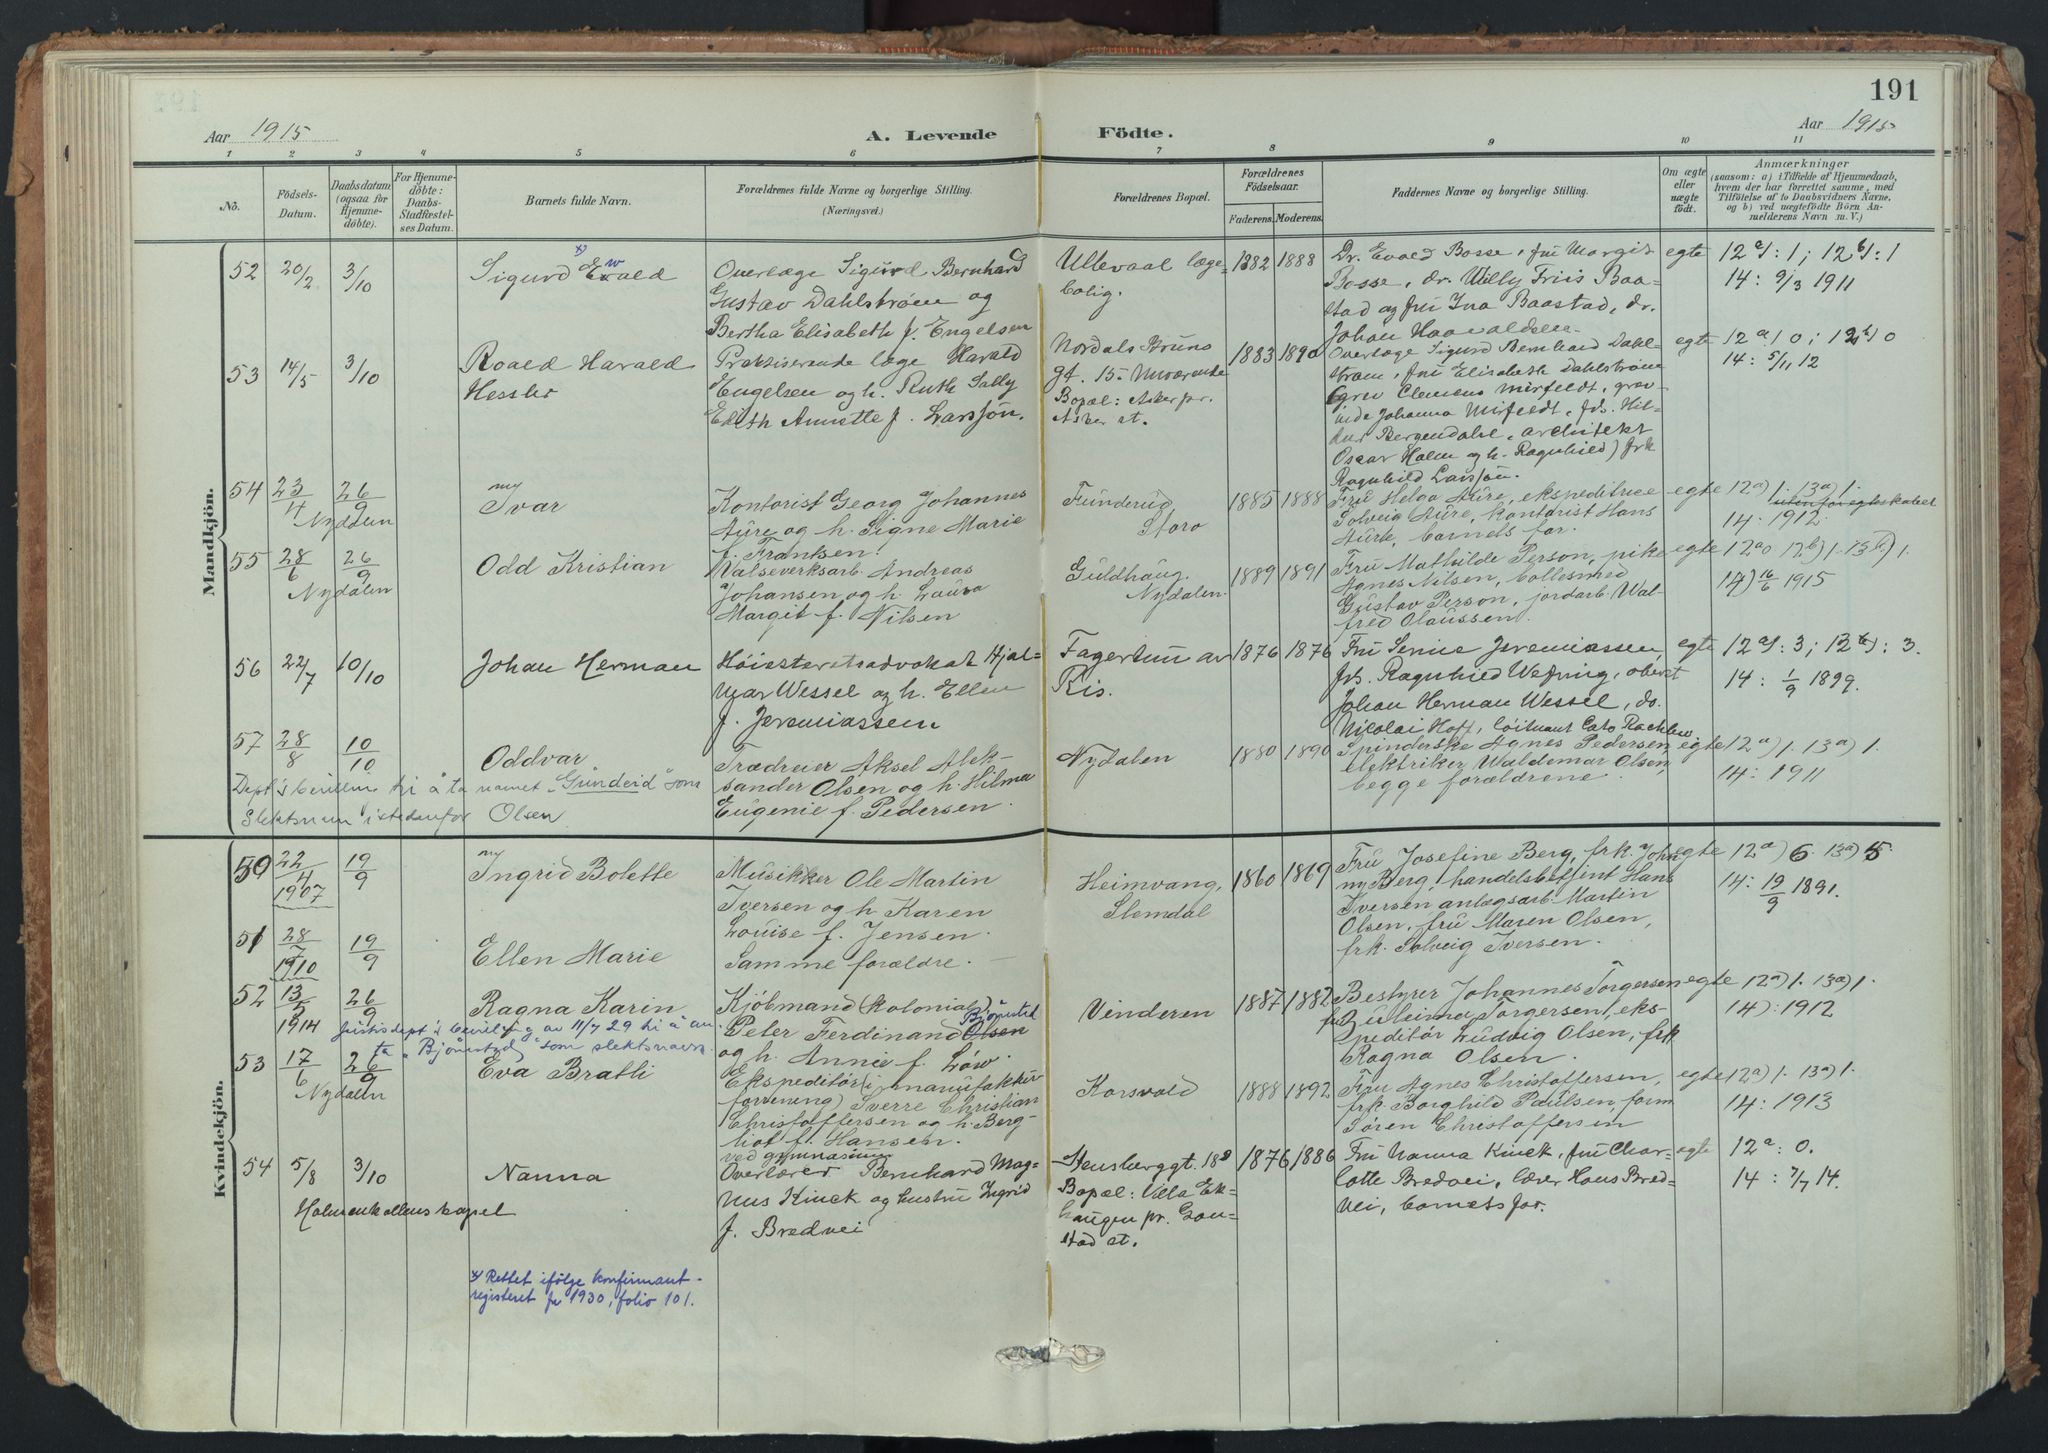 191
Aar 1915
A. Levende Födte.
Aar 1915
1 2 3 4 5 6 7 8 9 10 11
No.
Födsels-
Datum.
Daabsdatum
(ogsaa for
Hjemme-
döbte).
For Hjemme-
döbte:
Daabs-
Stadfæstel-
ses Datum.
Barnets fulde Navn.
Forældrenes fulde Navne og borgerlige Stilling.
(Næringsvei.)
Forældrenes Bopæl.
Forældrenes
Födselsaar.
Faderens. Moderens.
Faddernes Navne og borgerlige Stilling.
Om ægte
eller
uægte
födt.
Anmærkninger
(saasom: a) i Tilfælde af Hjemmedaab,
hvem der har forrettet samme, med
Tilföielse af to Daabsvidners Navne,
og b) ved uægtefödte Börn An-
melderens Navn m. V.)
Mandkjön.
52 20/2 3/10
Sigurd Ewald
Overlæge Sigurd Bernhard
Gustav Dahlstrøm og
Bertha Elisabeth f. Engelsen
Ullevaal læge-
bolig.
1882 1888
Dr. Evald Bosse, fru Margit
Bosse, dr. Willy Friis Baa-
stad og fru Ina Baastad, dr.
Johan Haavaldsen
egte
12 a): 1; 12 b): 1
14: 9/3 1911
53 14/5 3/10
Roald Harald
Hessler
Praktiserende læge Harald
Engelsen og h. Ruth Sally
Edith Annette f. Larssön.
Nordals Bruns
gt. 15. Nuværende
Bopæl: Asker pr.
Asker st.
1883 1890
Overlæge Sigurd Bernhard Dahl-
strøm, fru Elisabeth Dahlstrøm
Grev Clemens Mirfeldt, grev-
inde Johanna Mirfeldt, frk. Hil-
dur Bergendahl, architekt
Oscar Holm og h. Ragnhild, frk
Ragnhild Larssön.
egte
12 a) 0; 12 b) 0
14: 5/11 12
54 23/4 26/9
Nydalen
Ivar
Kontorist Georg Johannes
Aure og h. Signe Marie
f. Frantsen.
Funderud,
Storo
1885 1888
Fru Helga Aure, ekspeditrice
Solveig Aure, kontorist Hans
Aure, barnets far.
egte
12 a) 1. 13 a) 1.
14: 1912.
55 28/6 26/9
Nydalen
Odd Kristian
Valseverksarb. Andreas
Johansen og h. Laura
Margit f. Nilsen
Guldhaug.
Nydalen.
1889 1891
Fru Mathilde Person, pike
Agnes Nilsen,
Gustav Person, jordarb. Wal-
fred Olaussen.
egte
12 a) 0 12 b) 1. 13 b) 1.
14) 16/6 1915
56 22/7 10/10
Johan Herman
Høiesteretsadvokat Hjal-
mar Wessel og h. Ellen
f. Jeremiassen
Fagertun av
Ris.
1876 1876
Fru Jeremiassen,
frk. Ragnhild Wefring, oberst
Johan Herman Wessel, do.
Nicolai Hoff, löitnant Cato Rachlew
egte
12 a): 3; 12 b): 3.
14: 1/9 1899.
57 28/8 10/10
Oddvar
Trædreier Aksel Alek-
sander Olsen og h. Hilma
Eugenie f. Pedersen.
Nydalen
1880 1890
Spinderske Agnes Pedersen
elektriker Waldemar Olsen,
begge forældrene.
egte
12 a) 1. 13 a) 1.
14: 1911
Dept's bevilling til å ta navnet "Gundeid" som
slektsnavn istedenfor Olsen
Kvindekjön.
50 22/4 1907 19/9
Ingrid Bolette
Musikker Ole Martin
Iversen og h. Karen
Louise f. Jensen.
Heimvang,
Slemdal
1860 1869
Fru Josefine Berg, frk. John-
ny Berg, handelsbetjent Hans
Iversen anlægsarb. Martin
Olsen, fru Maren Olsen,
frk. Solveig Iversen.
egte
12 a) 6. 13 a) 5
14: 19/9 1891.
51 28/7 1910 19/9
Ellen Marie
Samme forældre.
52 13/5 1914 26/9
Ragna Karin
Kjöbmand (kolonial)
Peter Ferdinand Olsen Bjönstad
og h. Annie f. Löw.
Vinderen
1887 1882
Bestyrer Johannes Torgersen
fru Juleima Torgersen, eks-
peditör Ludvig Olsen, frk
Ragna Olsen.
egte
12 a) 1. 13 a) 1.
14): 1912
Justisdept's bevilling av 11/7 29 til å an-
ta "Bjönstad" som slektsnavn.
53 17/6 26/9
Nydalen
Eva Bratli
Ekspeditör (i manufaktur
forretning) Sverre Christian
Christoffersen og h. Berg-
liot f. Hansen.
Korsvold
1888 1892
Fru Agnes Christoffersen,
frk. Borghild Paulsen, form
Sören Christoffersen
egte
12 a) 1. 13 a) 1.
14: 1913
54 5/8 3/10
Holmenkollens kapel
Nanna
ved gymnasium
Overlærer Bernhard Mag-
nus Kinck og hustru Ingrid
f. Bredvei
Stensberggt. 18
Bopæl: Villa Ek-
haugen pr. Gau-
stad st.
1876 1886
Fru Nanna Kinck, fru Char-
lotte Bredvei, lærer Hans Bred-
vei, barnets far.
egte
12 a: 0.
14: 7/7 14.
x) Rettet ifölge konfirmant-
registeret for 1930, folio 101.